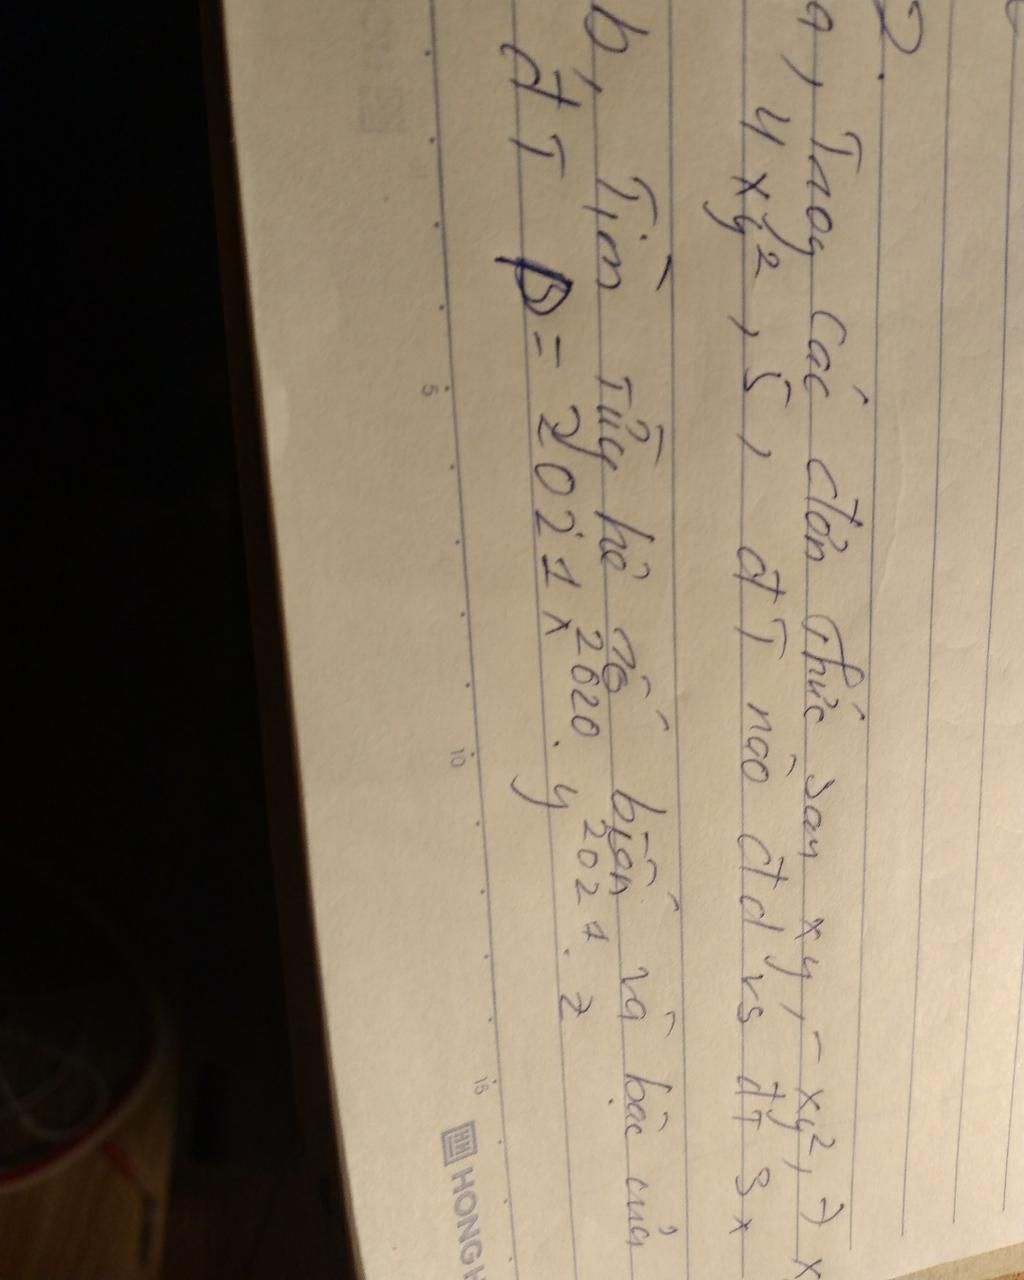 2.
a, Trog các đơn thức sau xy, - xy², 7x
4xy², 5, đT nào đd vs đT 3x
b, Tìm Tửg hê số biến và bậc của
đT D = 2021x²⁰²⁰ . y²⁰²¹ . z
5 10 15
HH HONGH